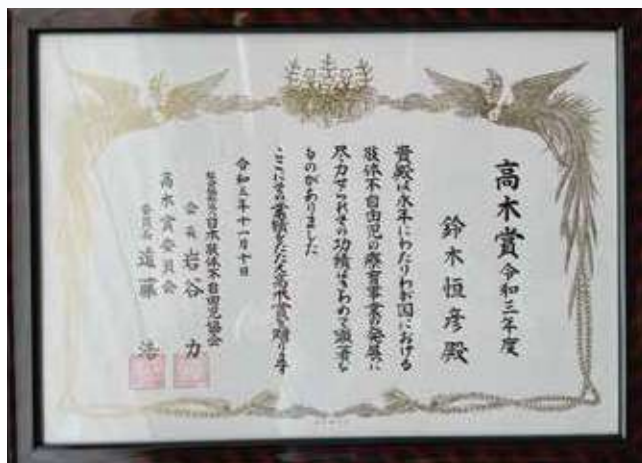 高木賞 令和三年度
鈴木恒彦殿
貴殿は永年にわたりわが国における
肢体不自由児の療育事業の発展に
尽力せられその功績はきわめて顕著な
ものがありました
ここにその業績をたたえ高木賞を贈ります
令和三年十一月十日
社会福祉法人日本肢体不自由児協会
会長 岩谷 力
高木賞委員会
委員長 遠藤 浩